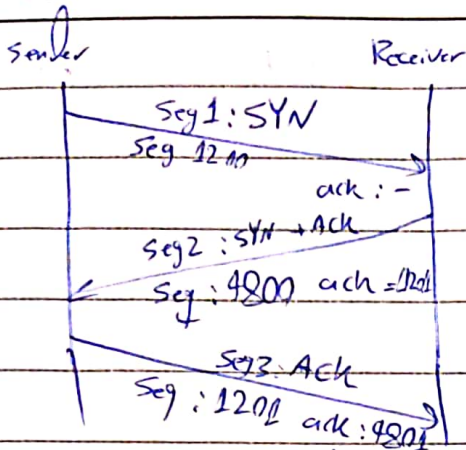 Sender
Receiver
Seg1: SYN
Seq 1200
ack : -
Seg2 : SYN + ACK
Seq : 4800 ack = 1201
Seg3: ACK
Seq : 1201 ack : 4801